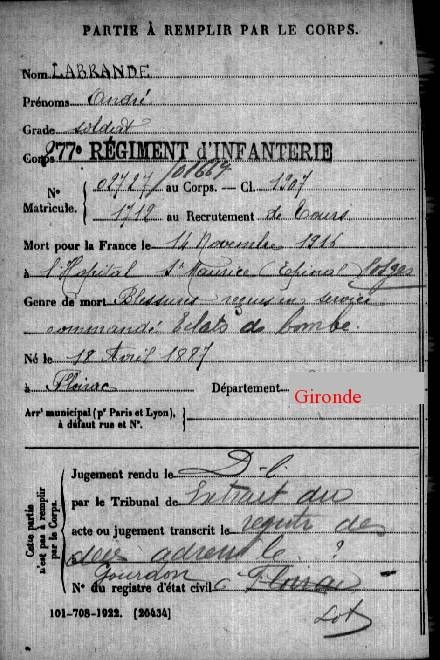 PARTIE À REMPLIR PAR LE CORPS.
Nom LABRANDE
Prénoms André
Grade soldat
Corps 277e RÉGIMENT d'INFANTERIE
/01664
N° Matricule. { 02727 au Corps. — Cl. 1907
1712 au Recrutement de Tours
Mort pour la France le 14 Novembre 1916
à l'Hopital St Maurice (Epinal Vosges
Genre de mort Blessures reçues en service
commandé Eclats de bombe.
Né le 18 Avril 1887
à Floirac Département Gironde
Arrt municipal (pr Paris et Lyon),
à défaut rue et N°.
Cette partie n'est pas à remplir par le Corps.
Jugement rendu le D.C.
par le Tribunal de Extrait du
acte ou jugement transcrit le registre des
adressé le ?
Gourdon
N° du registre d'état civil à Floirac
Lot
101-708-1922. [26434]